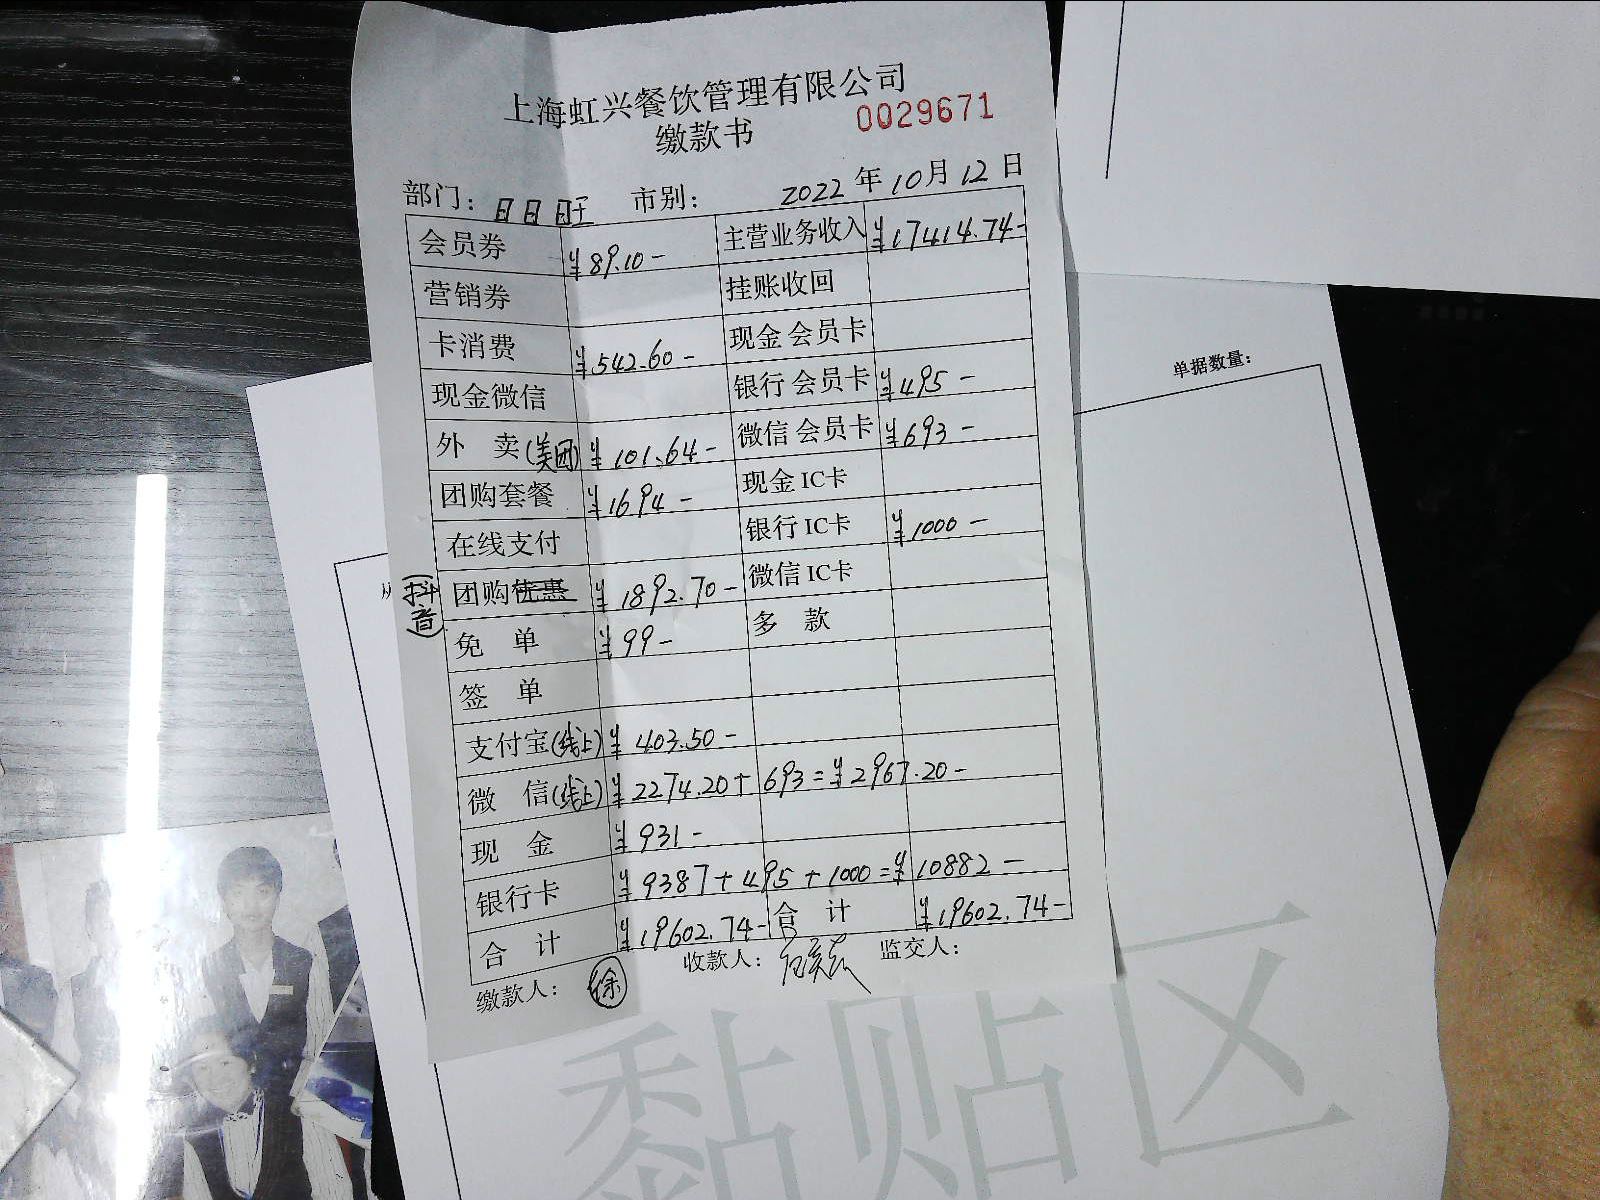 上海虹兴餐饮管理有限公司
缴款书 0029671
部门：日日旺 市别： 2022年10月12日
会员券 ¥89.10- 主营业务收入 ¥17414.74-
营销券 挂账收回
卡消费 ¥542.60- 现金会员卡
现金微信 银行会员卡 ¥495-
外 卖(美团) ¥101.64- 微信会员卡 ¥693-
团购套餐 ¥1694- 现金IC卡
在线支付 银行IC卡 ¥1000-
(抖音) 团购优惠 ¥1892.70- 微信IC卡
免 单 ¥99- 多 款
签 单
支付宝(线上) ¥403.50-
微 信(线上) ¥2274.20+693=¥2967.20-
现 金 ¥931-
银行卡 ¥9387+495+1000=¥10882-
合 计 ¥19602.74- 合 计 ¥19602.74-
缴款人： 徐 收款人： 监交人：
单据数量：
黏贴区